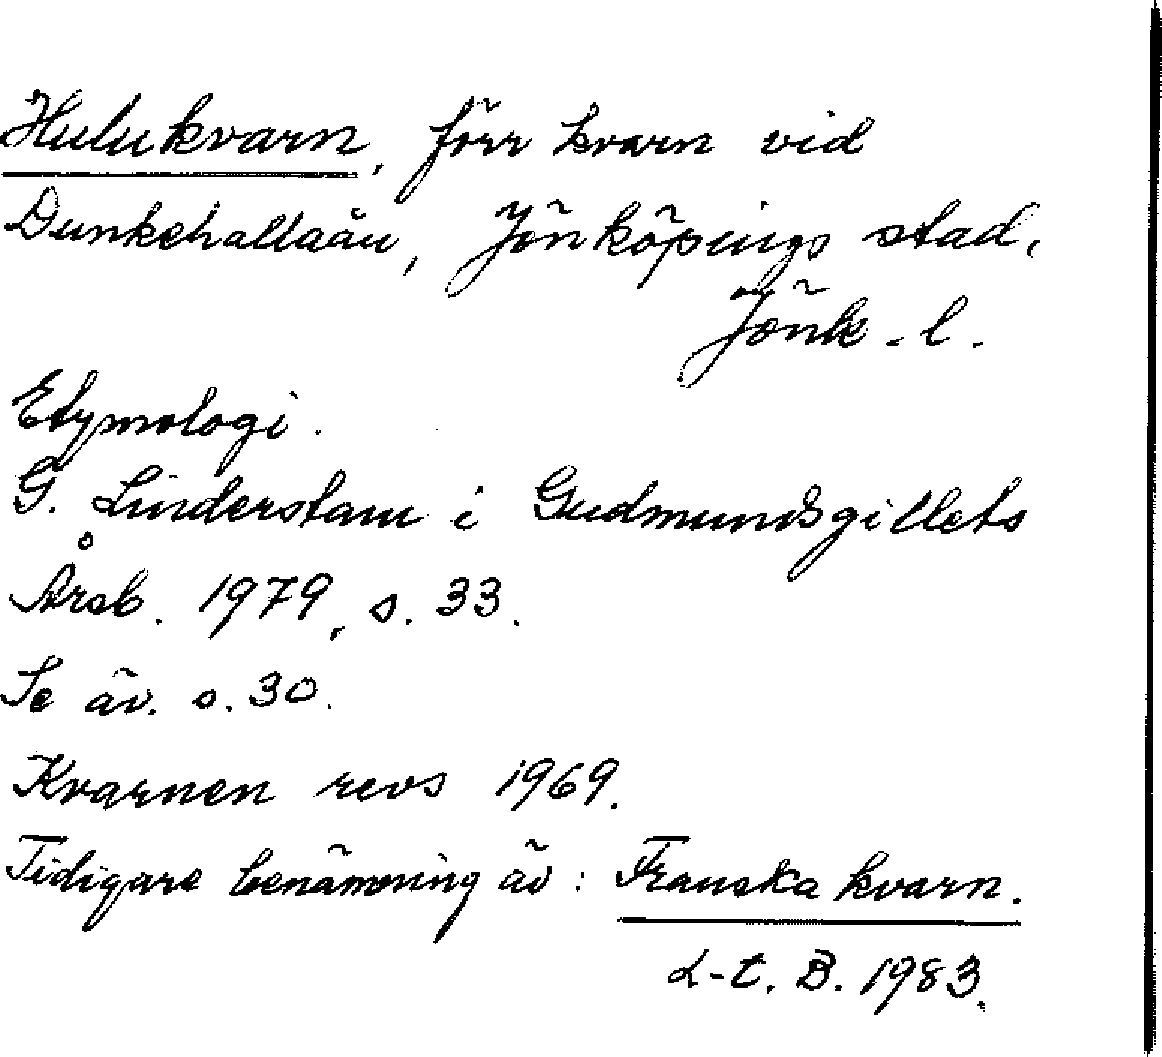 Hulukvarn, förr kvarn vid
Dunkehallaån, Jönköpings stad,
Jönk. l.
Etymologi.
G. Linderstam i Gudmundsgillets
Årsb. 1979, s. 33.
Se äv. s. 30.
Kvarnen revs 1969.
Tidigare benämning äv: Franska kvarn.
L-t. B. 1983.